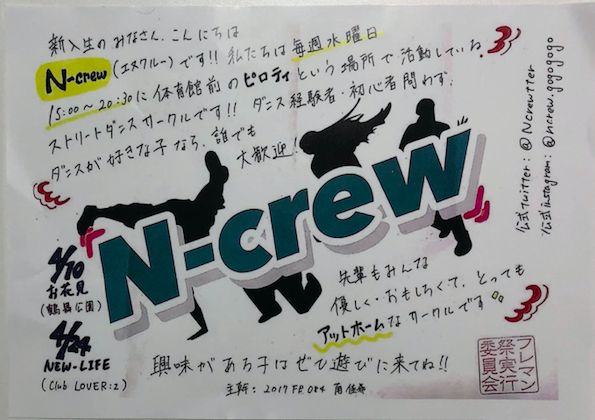 新入生のみなさん、こんにちは
N-crew(エヌクルー)です!! 私たちは毎週水曜日
15:00〜20:30に体育館前のピロティという場所で活動している
ストリートダンスサークルです!! ダンス経験者・初心者問わず、
ダンスが好きな子なら、誰でも
大歓迎!
公式Twitter: @Ncrewtter
公式instagram: @ncrew.gogogogo
『N-crew』
4/10
お花見
(鶴舞公園)
4/24
NEW-LIFE
(Club LOVER:z)
先輩もみんな
優しく・おもしろくて、とっても
アットホームなサークルです
興味がある子はぜひ遊びに来てね!!
主幹: 2017FP084
フレマン
祭実行
委員会